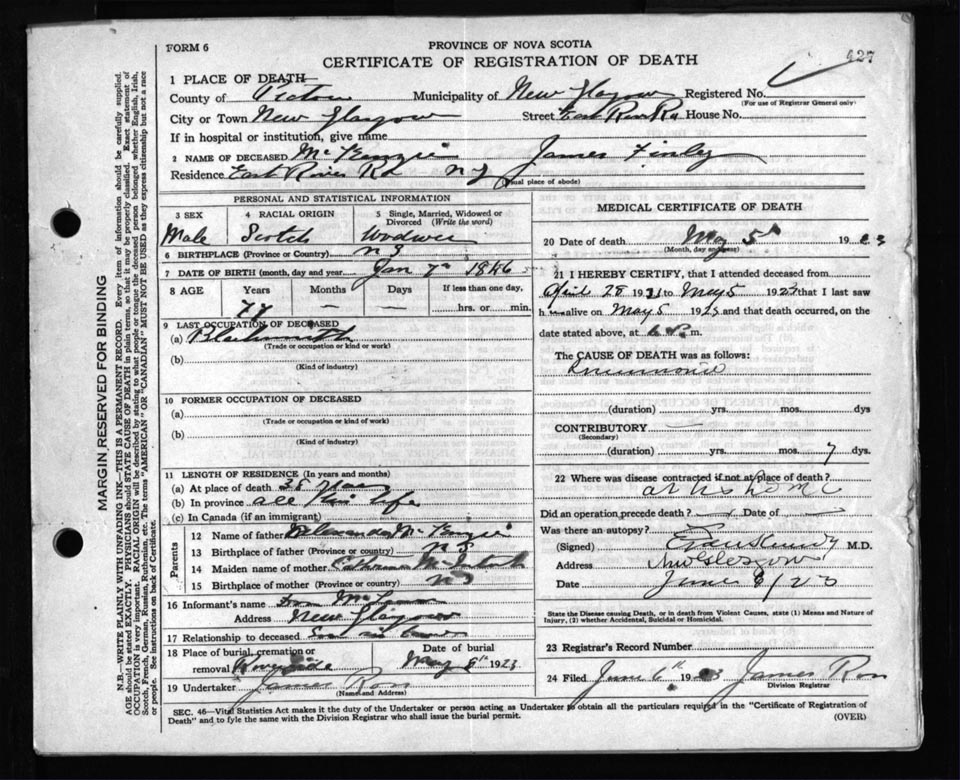 FORM 6
PROVINCE OF NOVA SCOTIA
CERTIFICATE OF REGISTRATION OF DEATH
627
1 PLACE OF DEATH
County of Pictou Municipality of New Glasgow Registered No.
(For use of Registrar General only)
City or Town New Glasgow Street East River Rd House No.
If in hospital or institution, give name
2 NAME OF DECEASED McKenzie James Finlay
Residence East River Rd N G
(Usual place of abode)
PERSONAL AND STATISTICAL INFORMATION
3 SEX
Male
4 RACIAL ORIGIN
Scotch
5 Single, Married, Widowed or Divorced (Write the word)
Widower
6 BIRTHPLACE (Province or Country) N S
7 DATE OF BIRTH (month, day and year) Jan 7th 1846
8 AGE Years Months Days If less than one day,
77 — — hrs. or min.
9 LAST OCCUPATION OF DECEASED
(a) Blacksmith
(Trade or occupation or kind or work)
(b)
(Kind of industry)
10 FORMER OCCUPATION OF DECEASED
(a)
(Trade or occupation or kind or work)
(b)
(Kind of industry)
11 LENGTH OF RESIDENCE (In years and months)
(a) At place of death 38 years
(b) In province all his life
(c) In Canada (if an immigrant)
Parents
12 Name of father Alexander McKenzie
13 Birthplace of father (Province or country) N S
14 Maiden name of mother Catherine McIntosh
15 Birthplace of mother (Province or country) N S
16 Informant's name
Address New Glasgow
17 Relationship to deceased Son in law
18 Place of burial, cremation or removal Riverside
Date of burial May 8th 1923
19 Undertaker James Ross
(Name and Address)
MEDICAL CERTIFICATE OF DEATH
20 Date of death May 5th 1923
(Month, day and year)
21 I HEREBY CERTIFY, that I attended deceased from
April 28 1923 to May 5 1923 that I last saw
h im alive on May 5 1923 and that death occurred, on the
date stated above, at 6 P. m.
The CAUSE OF DEATH was as follows:
Pneumonia
(duration) yrs. mos. dys
CONTRIBUTORY —
(Secondary)
(duration) yrs. mos. 7 dys.
22 Where was disease contracted if not at place of death?
at his home
Did an operation precede death? Date of
Was there an autopsy?
(Signed) M.D.
Address New Glasgow
Date June 8/23
State the Disease causing Death, or in death from Violent Causes, state (1) Means and Nature of Injury, (2) whether Accidental, Suicidal or Homicidal.
23 Registrar's Record Number
24 Filed June 6th 1923 James Ross
Division Registrar
SEC. 46—Vital Statistics Act makes it the duty of the Undertaker or person acting as Undertaker to obtain all the particulars required in the "Certificate of Registration of
Death" and to fyle the same with the Division Registrar who shall issue the burial permit.
(OVER)
MARGIN RESERVED FOR BINDING
N.B.—WRITE PLAINLY WITH UNFADING INK—THIS IS A PERMANENT RECORD. Every item of information should be carefully supplied.
AGE should be stated EXACTLY. PHYSICIANS should STATE CAUSE OF DEATH in plain terms, so that it may be properly classified. Exact statement of
OCCUPATION is very important. RACIAL ORIGIN will be described by stating to what people or tongue the deceased person belonged whether English, Irish,
Scotch, French, German, Russian, Ruthenian, etc. The terms "AMERICAN" OR "CANADIAN" MUST NOT BE USED as they express citizenship but not a race
or people. See instructions on back of Certificate.